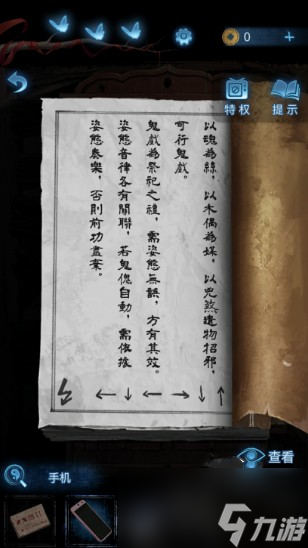 0
+
特权
提示
以魂為絲，以木偶為媒，以兇煞遺物招邪，
可行鬼戲。
鬼戲為祭祀之禮，需姿態無誤，方有其效。
姿態音律各有關聯，若鬼傀自動，需依據
姿態奏樂，否則前功盡棄。
↑↓→→←←
查看
手机
九游